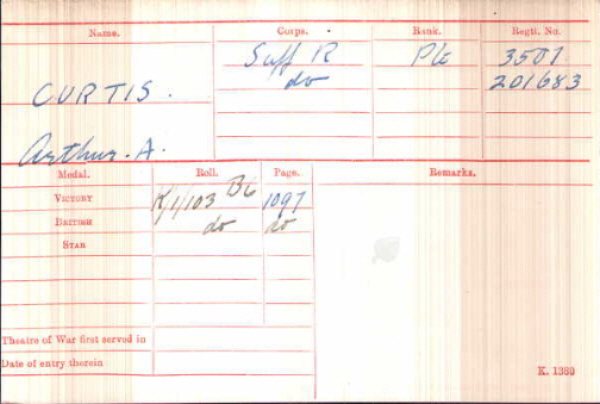 Name. Corps. Rank. Regtl. No.
CURTIS. Suff R Pte 3507
do 201683
Arthur. A.
Medal. Roll. Page. Remarks.
VICTORY K/1/103 B6 1097
BRITISH do do
STAR
Theatre of War first served in
Date of entry therein
K. 1380